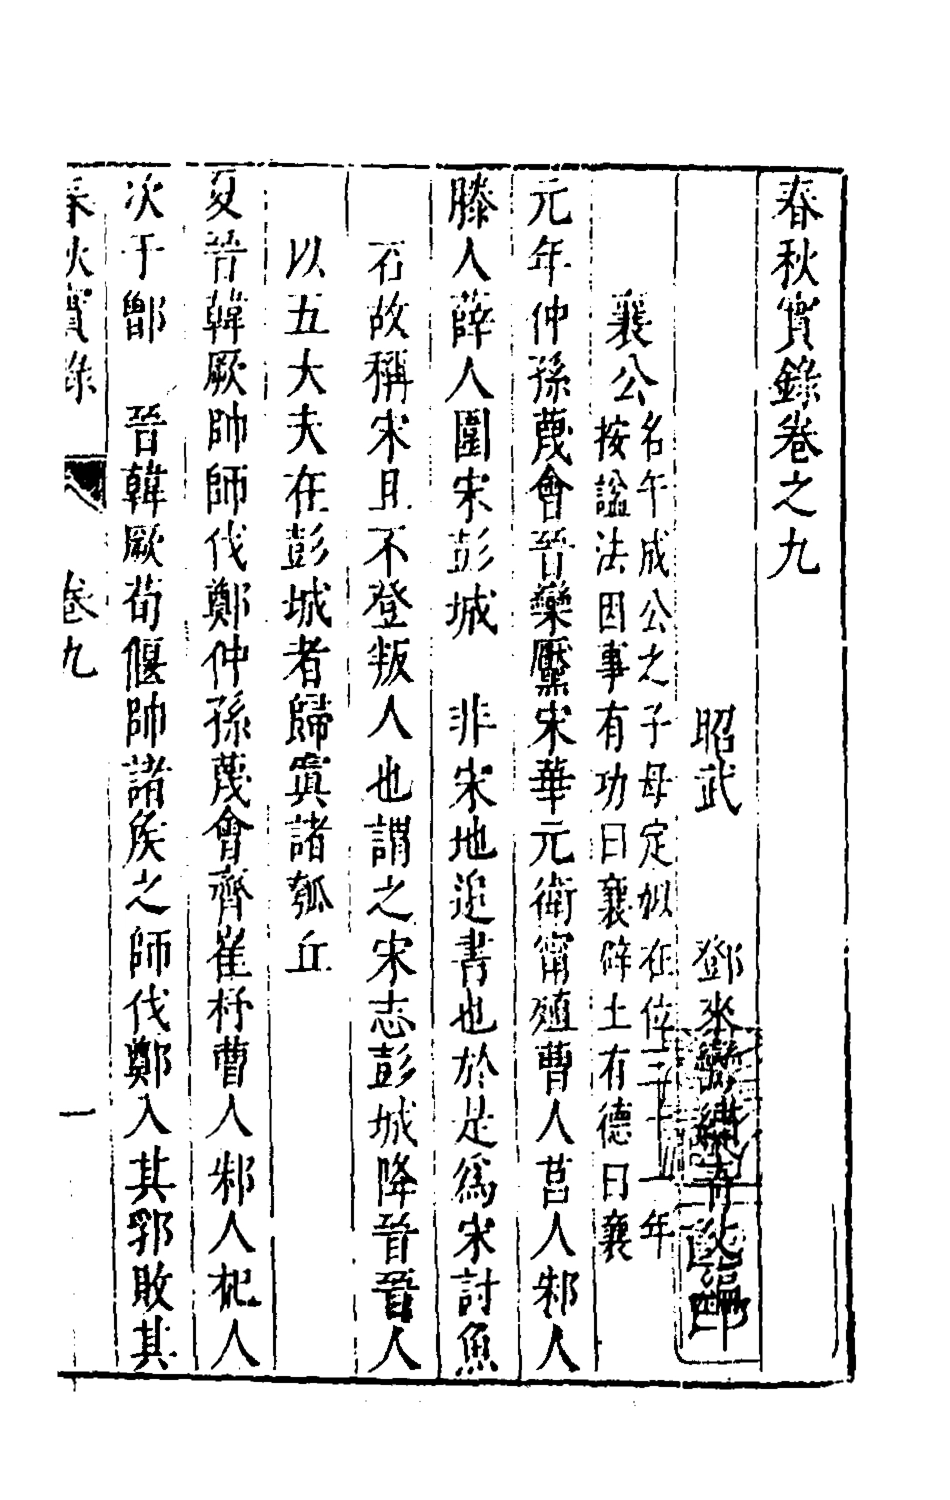 春秋實錄卷之九
昭武　鄧來鸞繡青父編
襄公
名午成公之子母定姒在位三十一年
按謚法因事有功曰襄辟土有德曰襄
元年仲孫蔑會晉欒黶宋華元衛甯殖曹人莒人邾人
滕人薛人圍宋彭城　非宋地追書也於是爲宋討魚
石故稱宋且不登叛人也謂之宋志彭城降晉晉人
以五大夫在彭城者歸寘諸瓠丘
夏晉韓厥帥師伐鄭仲孫蔑會齊崔杼曹人邾人杞人
次于鄫　晉韓厥荀偃帥諸矦之師伐鄭入其郛敗其
春秋實錄　卷九　一